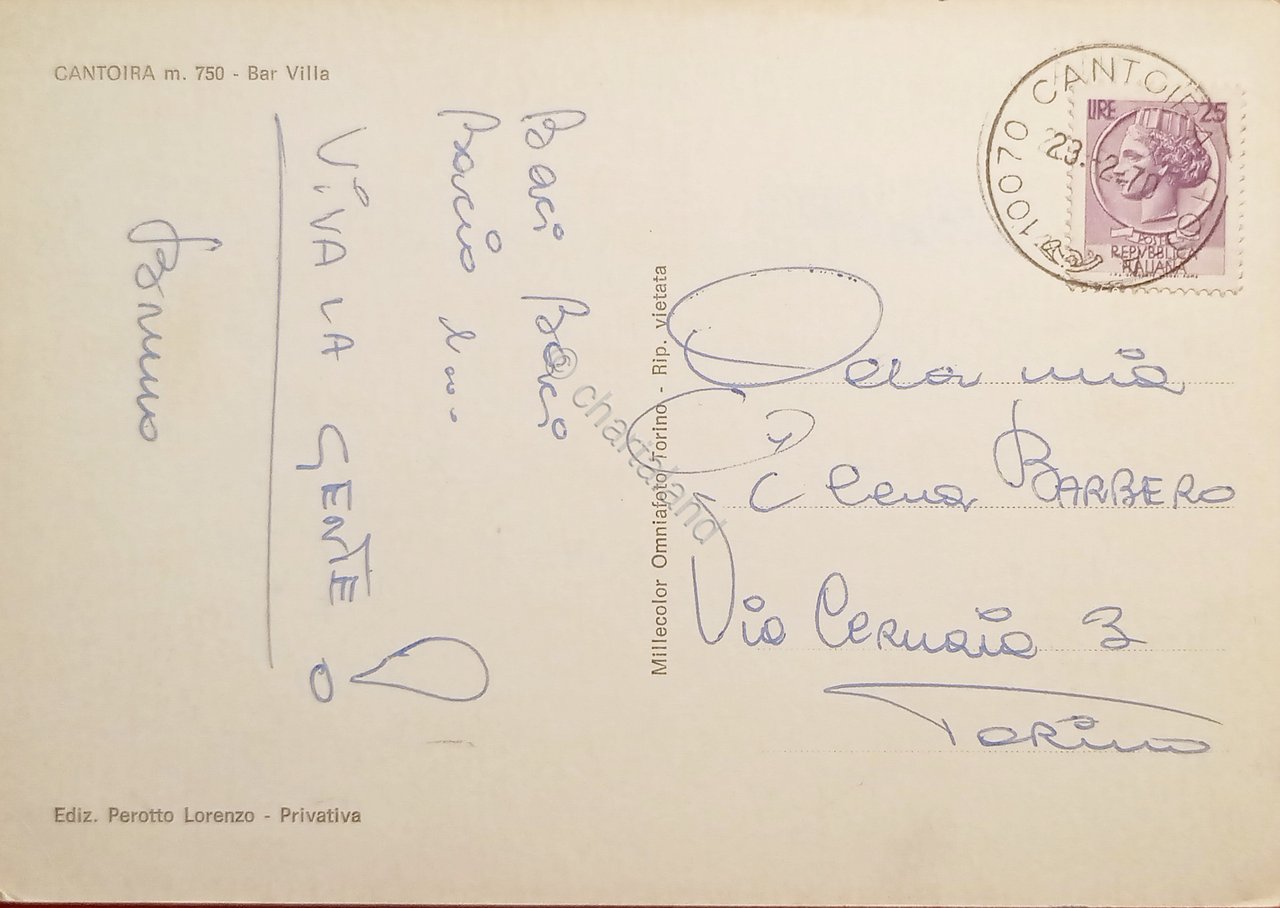 CANTOIRA m. 750 - Bar Villa
Baci Baci
Bacio
VIVA LA GENTE!
Ediz. Perotto Lorenzo - Privativa
Millecolor Omniafoto Torino - Rip. vietata
© chartaland
10070 CANTOIRA (TO)
-2-70
LIRE 25
POSTE
REPVBBLICA
ITALIANA
mia
Elena BARBERO
Via Cernaia 3
Torino